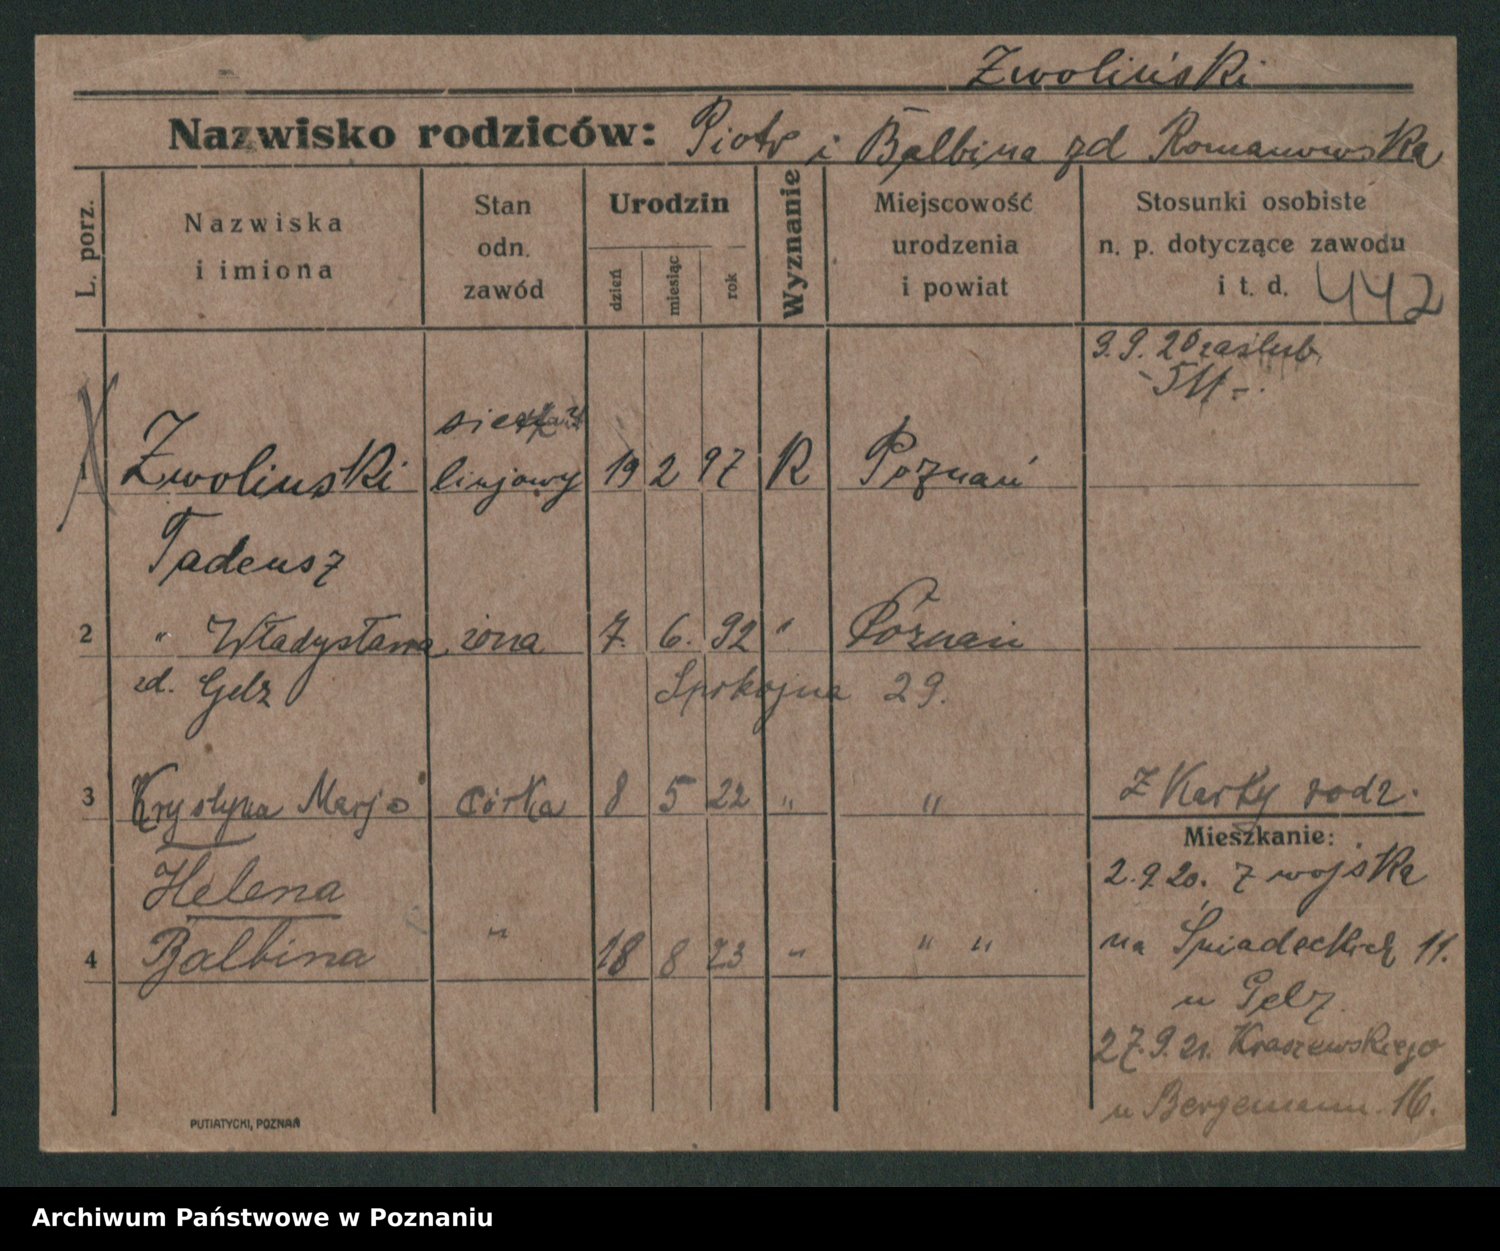 Zwoliński
Nazwisko rodziców: Piotr i Balbina zd Romanowska
L. porz.
Nazwiska
i imiona
Stan
odn.
zawód
Urodzin
dzień
miesiąc
rok
Wyznanie
Miejscowość
urodzenia
i powiat
Stosunki osobiste
n. p. dotyczące zawodu
i t. d. 442
9.9.20 zaślub.
511
1 Zwolinski linjowy 19 2 97 R Poznań
Tadeusz
2 " Władysława żona 7. 6. 92 " Poznań
zd. Gelz Spokojna 29.
3 Krystyna Marja córka 8 5 22 " " Z Karty rodz.
Helena
4 Balbina " 18 8 23 " " "
Mieszkanie:
2.9.20. z wojska
na Śniadeckich 11.
u Gelz
27.9.21. Kraszewskiego
u Bergemann 16.
PUTIATYCKI, POZNAŃ
Archiwum Państwowe w Poznaniu